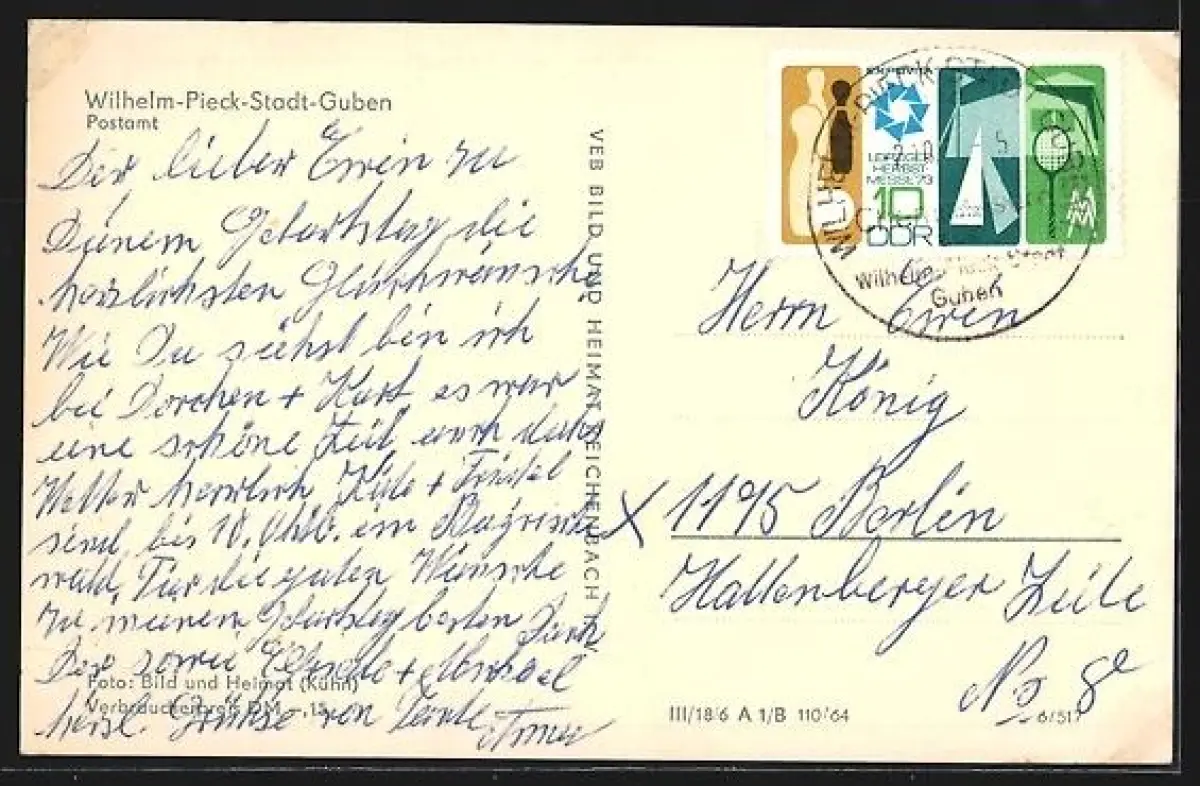 Wilhelm-Pieck-Stadt-Guben
Postamt
Dir lieber Erwin zu
Deinem Geburtstag die
herzlichsten Glückwünsche
Wie Du siehst bin ich
bei Dorchen + Kurt es war
eine schöne Zeit auch das
Wetter herrlich Käte +
sind bis 10. Okto. im
wald. Für die guten Wünsche
zu meinem Geburtstag besten Dank
Dir sowie +
herzl. Grüsse von Tante
Foto: Bild und Heimat (Kühn)
Verbraucherpreis DM -,15
VEB BILD UND HEIMAT REICHENBACH i. V.
EXPOVITA
LEIPZIGER
HERBST-
MESSE '73
10
DDR
MM
WILHELM-PIECK-STADT
GUBEN
Wilhelm-Pieck-Stadt
Guben
Herrn Erwin
König
X 1195 Berlin
Hattenberger Zeile
No 8e
III/18/6 A 1/B 110/64
6/517